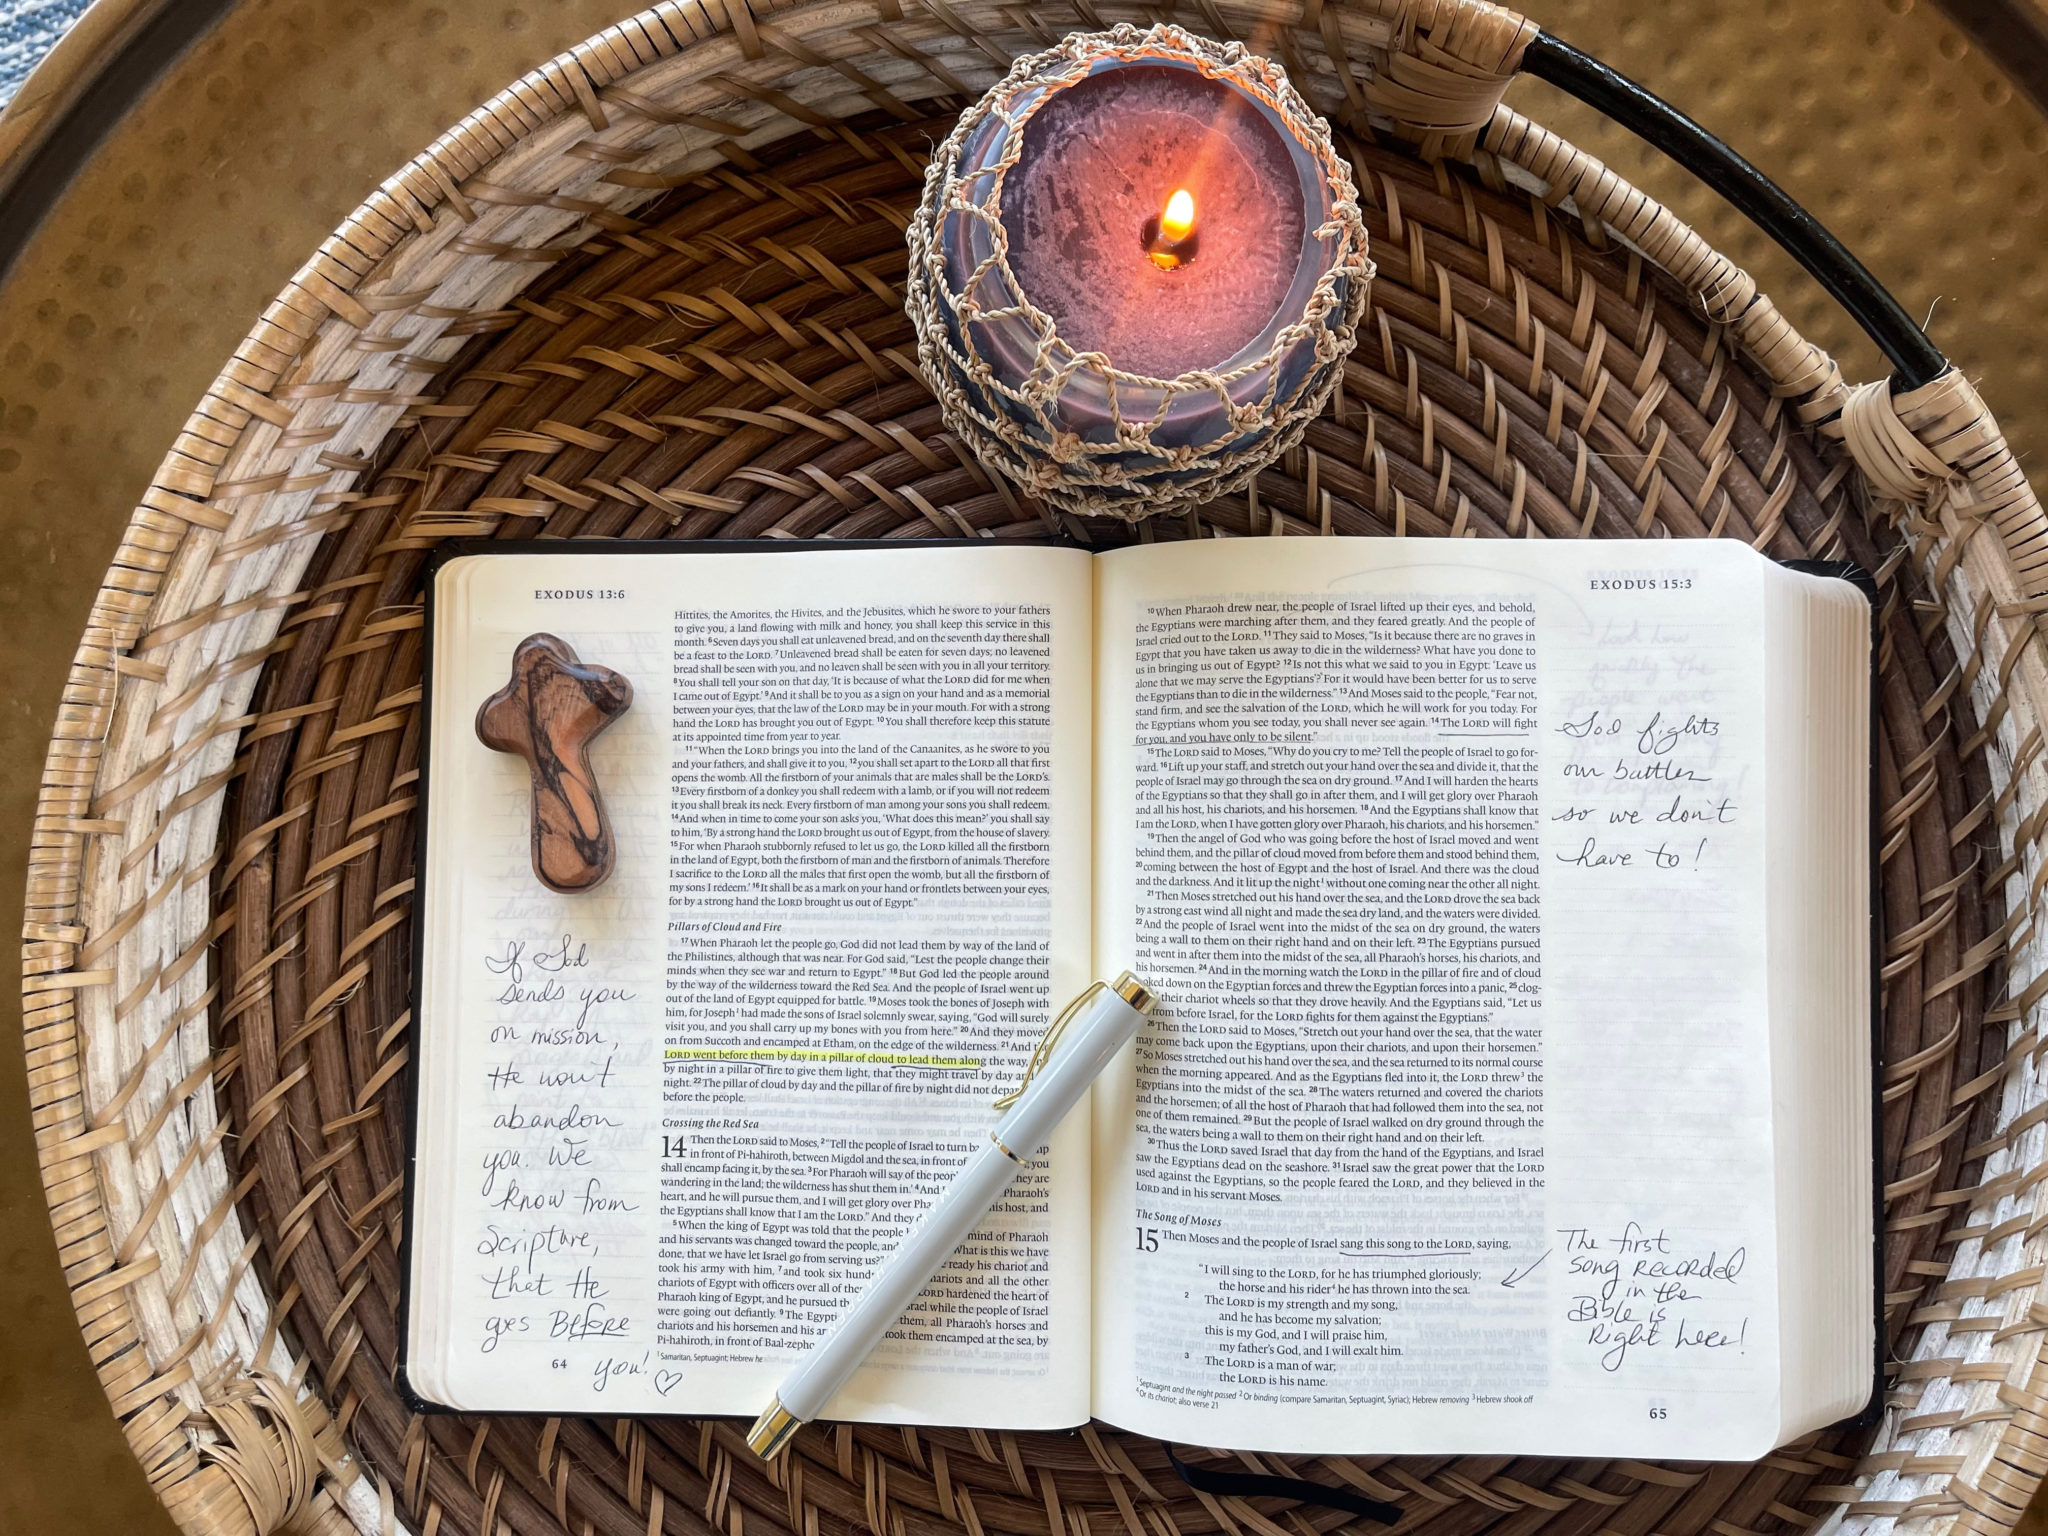 EXODUS 13:6
Hittites, the Amorites, the Hivites, and the Jebusites, which he swore to your fathers
to give you, a land flowing with milk and honey, you shall keep this service in this
month. 6 Seven days you shall eat unleavened bread, and on the seventh day there shall
be a feast to the LORD. 7 Unleavened bread shall be eaten for seven days; no leavened
bread shall be seen with you, and no leaven shall be seen with you in all your territory.
8 You shall tell your son on that day, 'It is because of what the LORD did for me when
I came out of Egypt.' 9 And it shall be to you as a sign on your hand and as a memorial
between your eyes, that the law of the LORD may be in your mouth. For with a strong
hand the LORD has brought you out of Egypt. 10 You shall therefore keep this statute
at its appointed time from year to year.
11 "When the LORD brings you into the land of the Canaanites, as he swore to you
and your fathers, and shall give it to you, 12 you shall set apart to the LORD all that first
opens the womb. All the firstborn of your animals that are males shall be the LORD's.
13 Every firstborn of a donkey you shall redeem with a lamb, or if you will not redeem
it you shall break its neck. Every firstborn of man among your sons you shall redeem.
14 And when in time to come your son asks you, 'What does this mean?' you shall say
to him, 'By a strong hand the LORD brought us out of Egypt, from the house of slavery.
15 For when Pharaoh stubbornly refused to let us go, the LORD killed all the firstborn
in the land of Egypt, both the firstborn of man and the firstborn of animals. Therefore
I sacrifice to the LORD all the males that first open the womb, but all the firstborn of
my sons I redeem.' 16 It shall be as a mark on your hand or frontlets between your eyes,
for by a strong hand the LORD brought us out of Egypt."
Pillars of Cloud and Fire
17 When Pharaoh let the people go, God did not lead them by way of the land of
the Philistines, although that was near. For God said, "Lest the people change their
minds when they see war and return to Egypt." 18 But God led the people around
by the way of the wilderness toward the Red Sea. And the people of Israel went up
out of the land of Egypt equipped for battle. 19 Moses took the bones of Joseph with
him, for Joseph 1 had made the sons of Israel solemnly swear, saying, "God will surely
visit you, and you shall carry up my bones with you from here." 20 And they moved
on from Succoth and encamped at Etham, on the edge of the wilderness. 21 And
LORD went before them by day in a pillar of cloud to lead them along the way,
by night in a pillar of fire to give them light, that they might travel by day
night. 22 The pillar of cloud by day and the pillar of fire by night did not
before the people.
Crossing the Red Sea
14 Then the LORD said to Moses, 2 "Tell the people of Israel to turn
in front of Pi-hahiroth, between Migdol and the sea, in front of you
shall encamp facing it, by the sea. 3 For Pharaoh will say of the are
wandering in the land; the wilderness has shut them in.' 4 And Pharaoh's
heart, and he will pursue them, and I will get glory over host, and
the Egyptians shall know that I am the LORD." And they
5 When the king of Egypt was told that the people mind of Pharaoh
and his servants was changed toward the people, and What is this we have
done, that we have let Israel go from serving us?" ready his chariot and
took his army with him, 7 and took six and all the other
chariots of Egypt with officers over all of hardened the heart of
Pharaoh king of Egypt, and he pursued while the people of Israel
were going out defiantly. 9 The them, all Pharaoh's horses and
chariots and his horsemen and his took them encamped at the sea, by
Pi-hahiroth, in front of
1 Samaritan, Septuagint; Hebrew he
64
If God
sends you
on mission,
He won't
abandon
you. We
know from
Scripture,
that He
goes Before
you!
EXODUS 15:3
10 When Pharaoh drew near, the people of Israel lifted up their eyes, and behold,
the Egyptians were marching after them, and they feared greatly. And the people of
Israel cried out to the LORD. 11 They said to Moses, "Is it because there are no graves in
Egypt that you have taken us away to die in the wilderness? What have you done to
us in bringing us out of Egypt? 12 Is not this what we said to you in Egypt: 'Leave us
alone that we may serve the Egyptians'? For it would have been better for us to serve
the Egyptians than to die in the wilderness." 13 And Moses said to the people, "Fear not,
stand firm, and see the salvation of the LORD, which he will work for you today. For
the Egyptians whom you see today, you shall never see again. 14 The LORD will fight
for you, and you have only to be silent."
15 The LORD said to Moses, "Why do you cry to me? Tell the people of Israel to go for-
ward. 16 Lift up your staff, and stretch out your hand over the sea and divide it, that the
people of Israel may go through the sea on dry ground. 17 And I will harden the hearts
of the Egyptians so that they shall go in after them, and I will get glory over Pharaoh
and all his host, his chariots, and his horsemen. 18 And the Egyptians shall know that
I am the LORD, when I have gotten glory over Pharaoh, his chariots, and his horsemen."
19 Then the angel of God who was going before the host of Israel moved and went
behind them, and the pillar of cloud moved from before them and stood behind them,
20 coming between the host of Egypt and the host of Israel. And there was the cloud
and the darkness. And it lit up the night 1 without one coming near the other all night.
21 Then Moses stretched out his hand over the sea, and the LORD drove the sea back
by a strong east wind all night and made the sea dry land, and the waters were divided.
22 And the people of Israel went into the midst of the sea on dry ground, the waters
being a wall to them on their right hand and on their left. 23 The Egyptians pursued
and went in after them into the midst of the sea, all Pharaoh's horses, his chariots, and
his horsemen. 24 And in the morning watch the LORD in the pillar of fire and of cloud
down on the Egyptian forces and threw the Egyptian forces into a panic, 25 clog-
their chariot wheels so that they drove heavily. And the Egyptians said, "Let us
from before Israel, for the LORD fights for them against the Egyptians."
26 Then the LORD said to Moses, "Stretch out your hand over the sea, that the water
may come back upon the Egyptians, upon their chariots, and upon their horsemen."
27 So Moses stretched out his hand over the sea, and the sea returned to its normal course
when the morning appeared. And as the Egyptians fled into it, the LORD threw 3 the
Egyptians into the midst of the sea. 28 The waters returned and covered the chariots
and the horsemen; of all the host of Pharaoh that had followed them into the sea, not
one of them remained. 29 But the people of Israel walked on dry ground through the
sea, the waters being a wall to them on their right hand and on their left.
30 Thus the LORD saved Israel that day from the hand of the Egyptians, and Israel
saw the Egyptians dead on the seashore. 31 Israel saw the great power that the LORD
used against the Egyptians, so the people feared the LORD, and they believed in the
LORD and in his servant Moses.
The Song of Moses
15 Then Moses and the people of Israel sang this song to the LORD, saying,
"I will sing to the LORD, for he has triumphed gloriously;
the horse and his rider 4 he has thrown into the sea.
2 The LORD is my strength and my song,
and he has become my salvation;
this is my God, and I will praise him,
my father's God, and I will exalt him.
3 The LORD is a man of war;
the LORD is his name.
1 Septuagint and the night passed 2 Or binding (compare Samaritan, Septuagint, Syriac); Hebrew removing 3 Hebrew shook off
4 Or its chariot; also verse 21
65
God fights
our battles
so we don't
have to!
The first
song recorded
in the
Bible is
Right here!